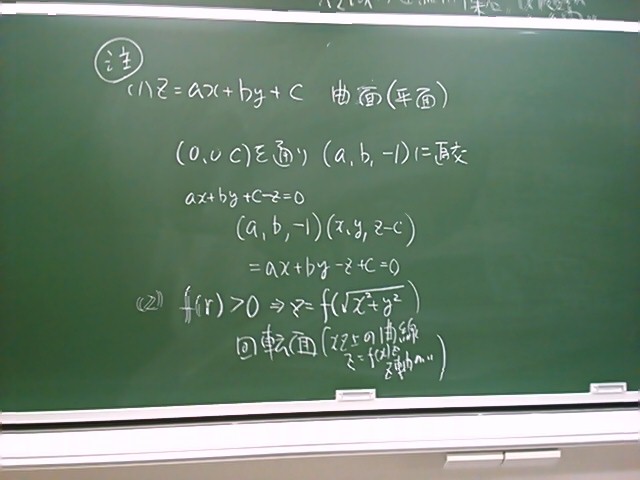 注
(1) z=ax+by+c 曲面(平面)
(0,0 c)を通り (a,b,-1)に直交
ax+by+c-z=0
(a,b,-1)(x,y,z-c)
=ax+by-z+c=0
(2) f(r)>0 ⇒ z=f(√x²+y²)
回転面(xz上の曲線
z=f(x)を
z軸